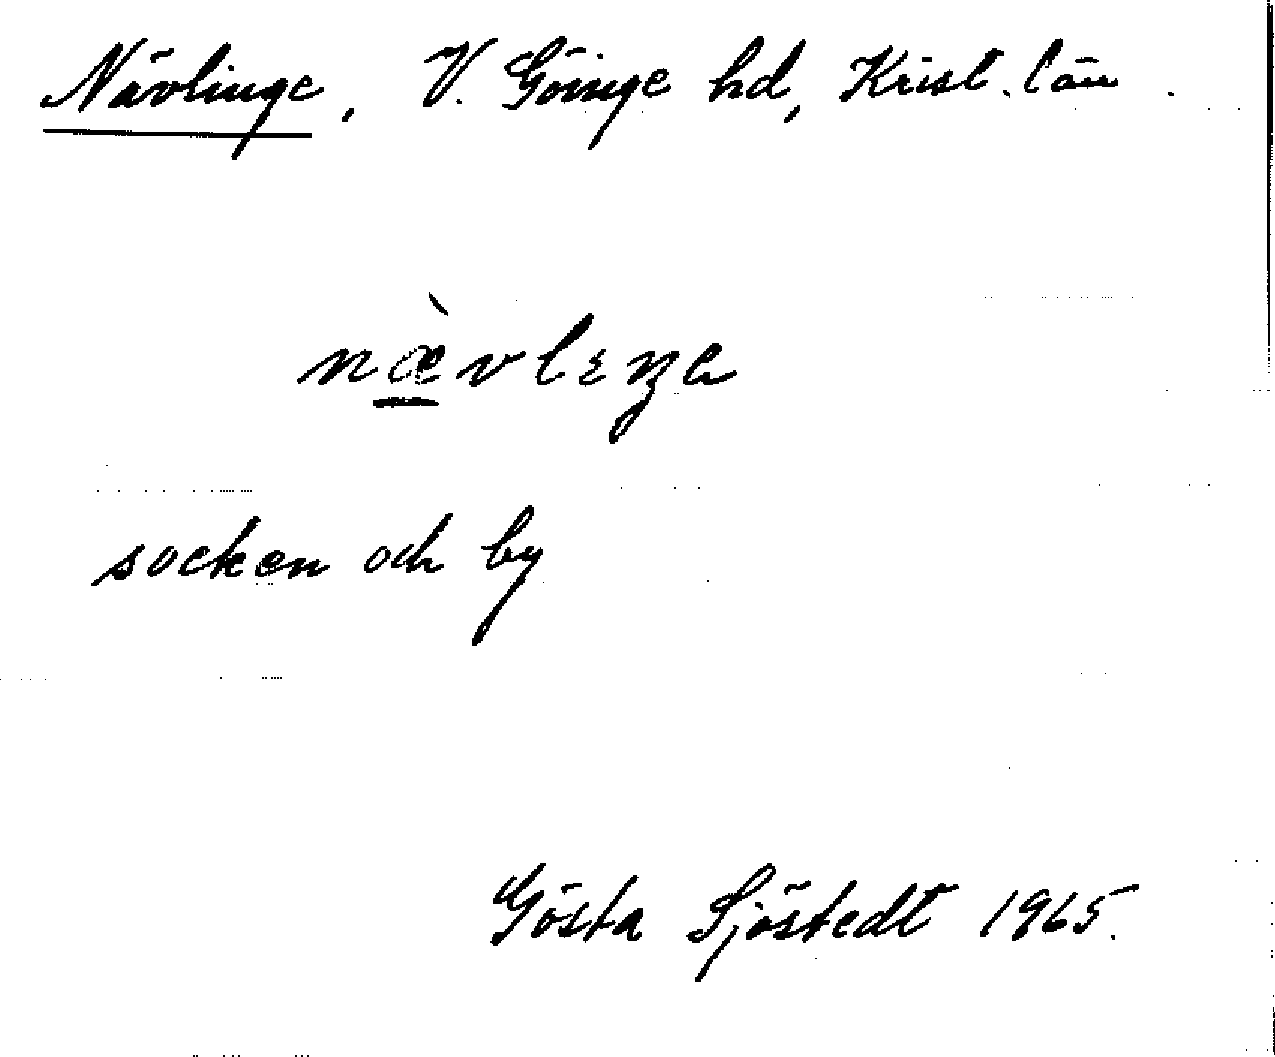 Nävlinge, V. Göinge hd, Krist. län.
næ̀vlɛŋa
socken och by
Gösta Sjöstedt 1965.